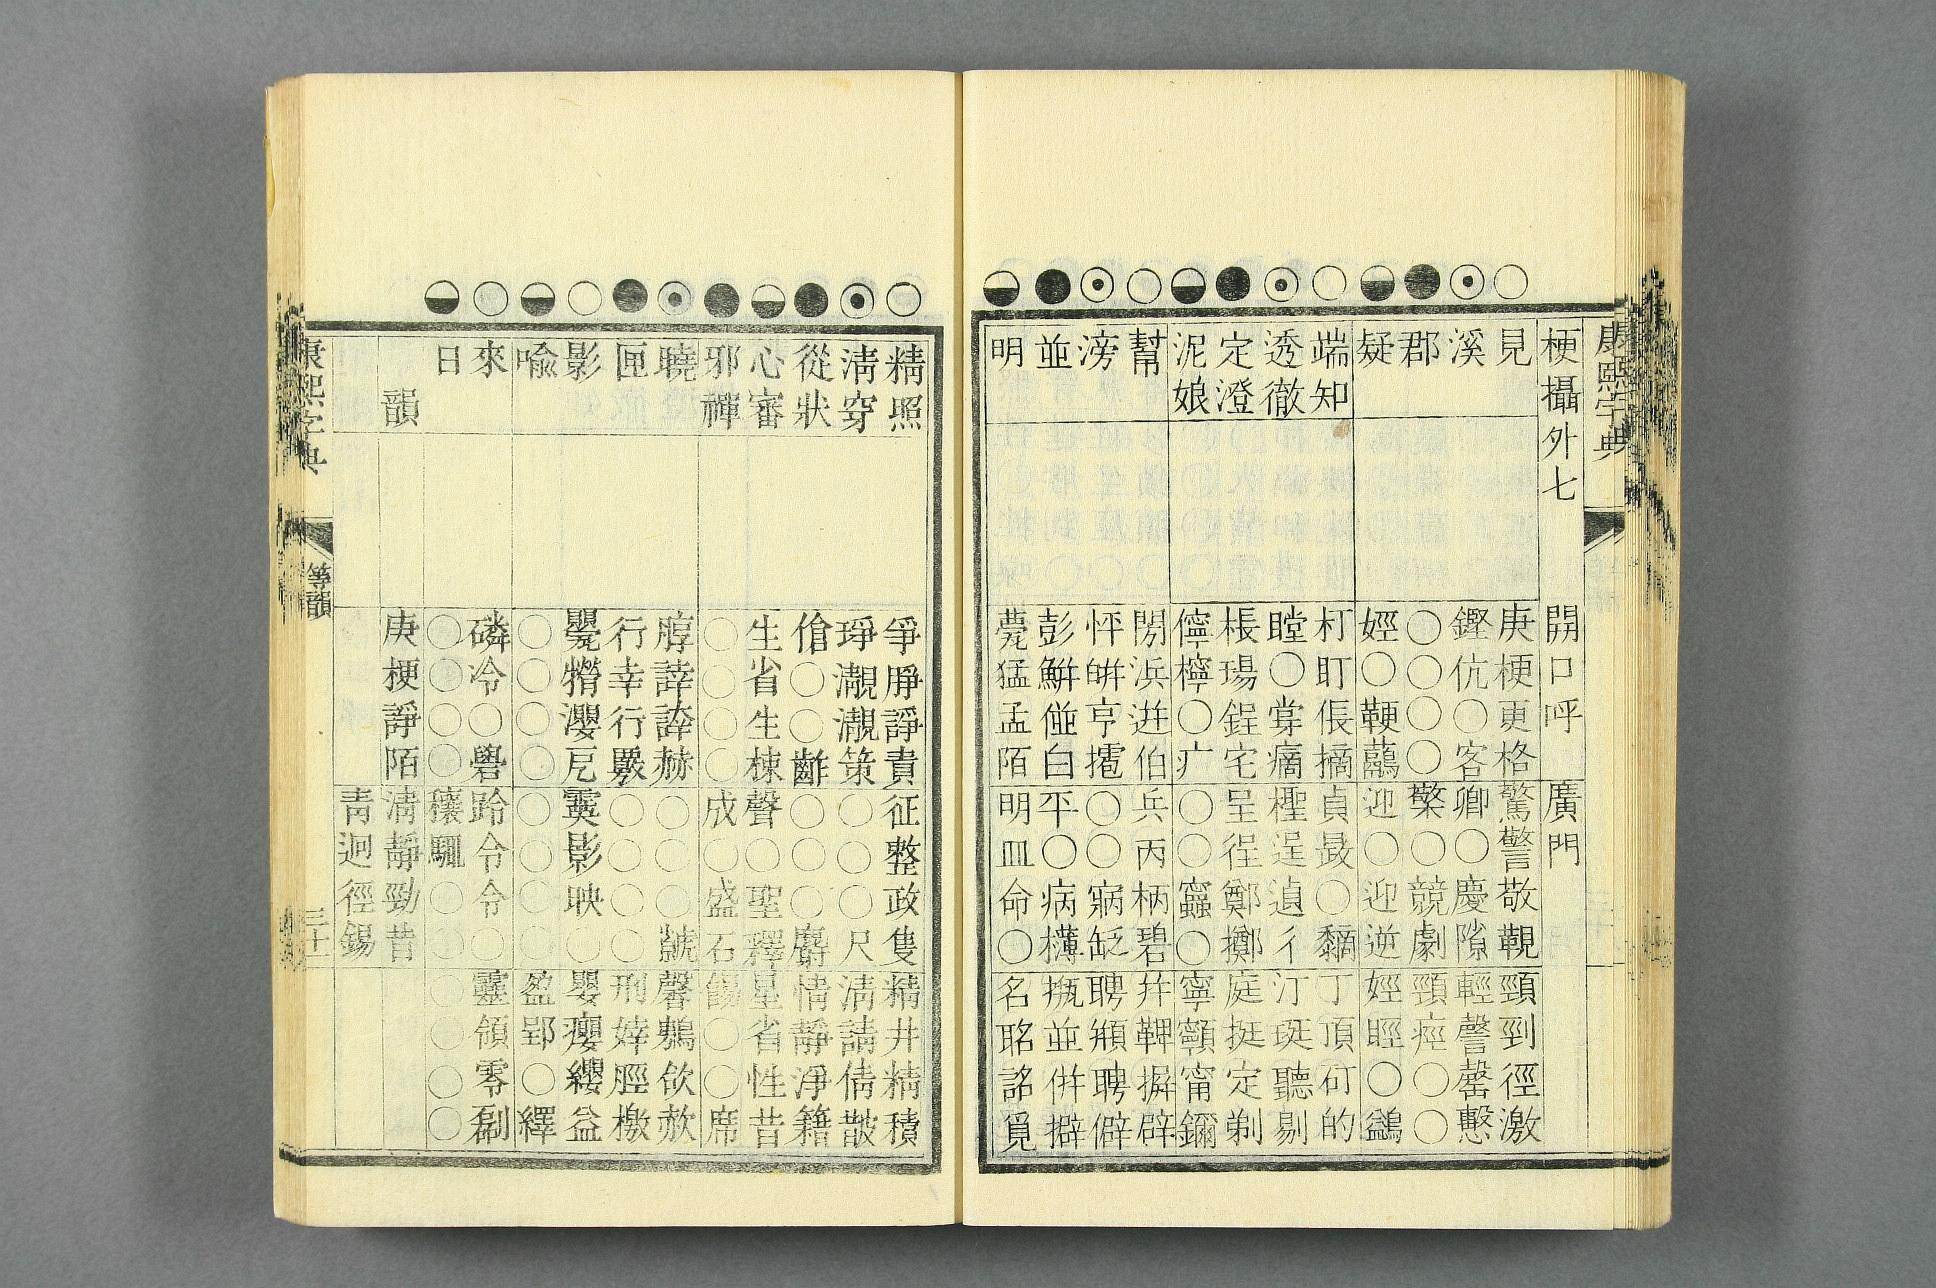 康熙字典
梗攝外七 開口呼 廣門
見 庚梗更格 驚警敬 頸剄徑激
溪 鏗伉○客 卿○慶隙 輕謦罄
郡 ○○○○ 檠○競劇 頸痙○○
疑 娙○鞕虉 迎○迎逆 娙脛○鷁
端知 朾盯倀摘 貞晸○黐 丁頂矴的
透徹 瞠○牚㿭 檉逞遉彳 汀珽聽剔
定澄 棖瑒鋥宅 呈徎鄭擲 庭挺定剃
泥娘 儜檸○疒 ○○䆨○ 寧顊甯鑈
幫 閍浜迸伯 兵丙柄碧 并鞞摒辟
滂 怦皏亨㩧 ○○寎 聘頩聘僻
並 彭鮩偋白 平○病欂 瓶並併擗
明 甍猛孟陌 明皿命○ 名眳詺覓
精照 爭睜諍責 征整政隻 精井精積
淸穿 琤瀙瀙策 ○○○尺 淸請倩皵
從狀 傖○○齰 ○○○麝 情靜淨籍
心審 生省生栜 聲○聖釋 星省性昔
邪禪 ○○○○ 成○盛石 餳○○席
曉 脝諱赫 ○○○虩 馨欱赥
匣 行幸行覈 ○○○○ 刑婞脛檄
影 甖瀴戹 霙影映○ 嬰癭纓益
喩 ○○○○ ○○○○ 盈郢○繹
來 磷冷○礐 跉令令○ 靈領零剔
日 ○○○○ 穰○○ ○○○○
韻 庚梗諍陌 淸靜勁昔
靑迥徑錫
康熙字典 等韻